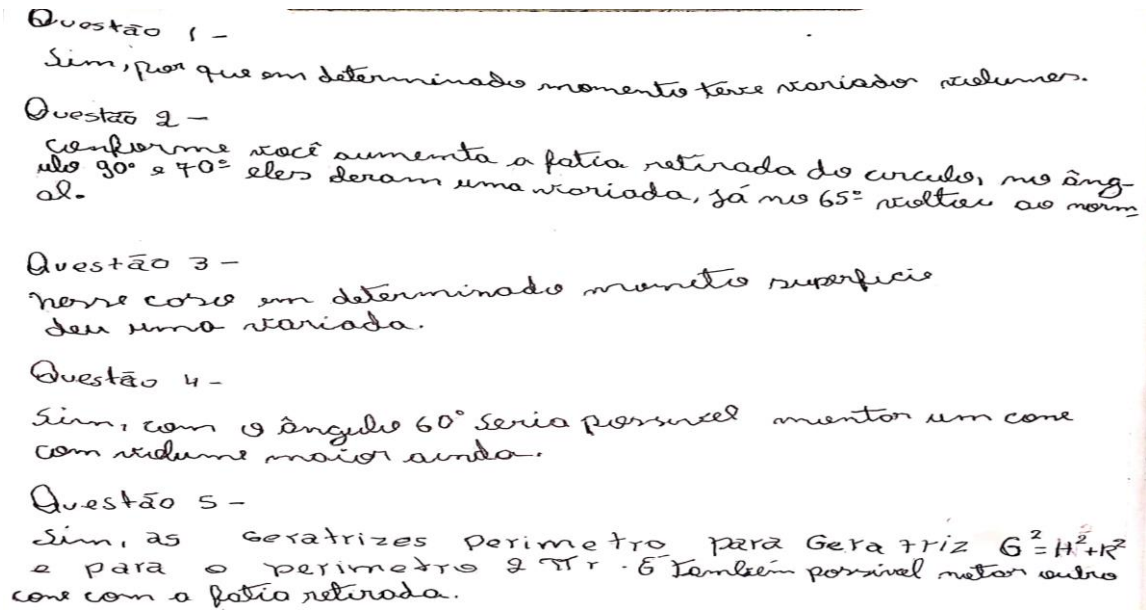 Questão 1 -
Sim, por que em determinado momento teve variados volumes.
Questão 2 -
Conforme você aumenta a fatia retirada do circulo, no âng-
ulo 90° e 70° eles deram uma variada, já no 65° voltou ao norm
al.
Questão 3 -
nesse caso em determinado momento superficie
deu uma variada.
Questão 4 -
Sim, com o ângulo 60° seria possivel montar um cone
com volume maior ainda.
Questão 5 -
Sim, as Geratrizes perimetro para Geratriz G²=H²+R²
e para o perimetro 2πr. É também possivel notar outro
cone com a fatia retirada.